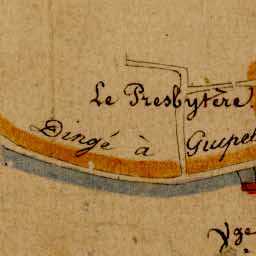 Le Presbytère.
Dingé à Guipel